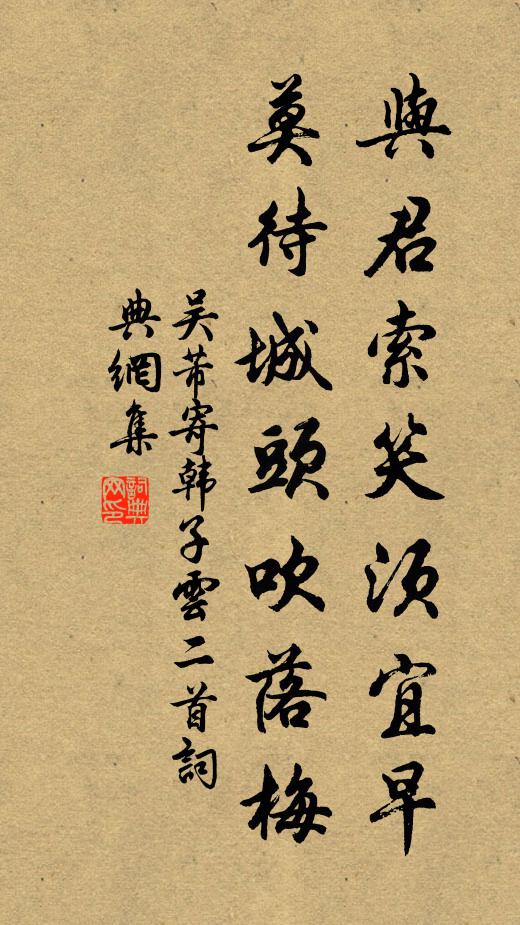 與君索笑須宜早
莫待城頭吹落梅
吳芾寄韩子雲二首詞
典網集
詞典
网印